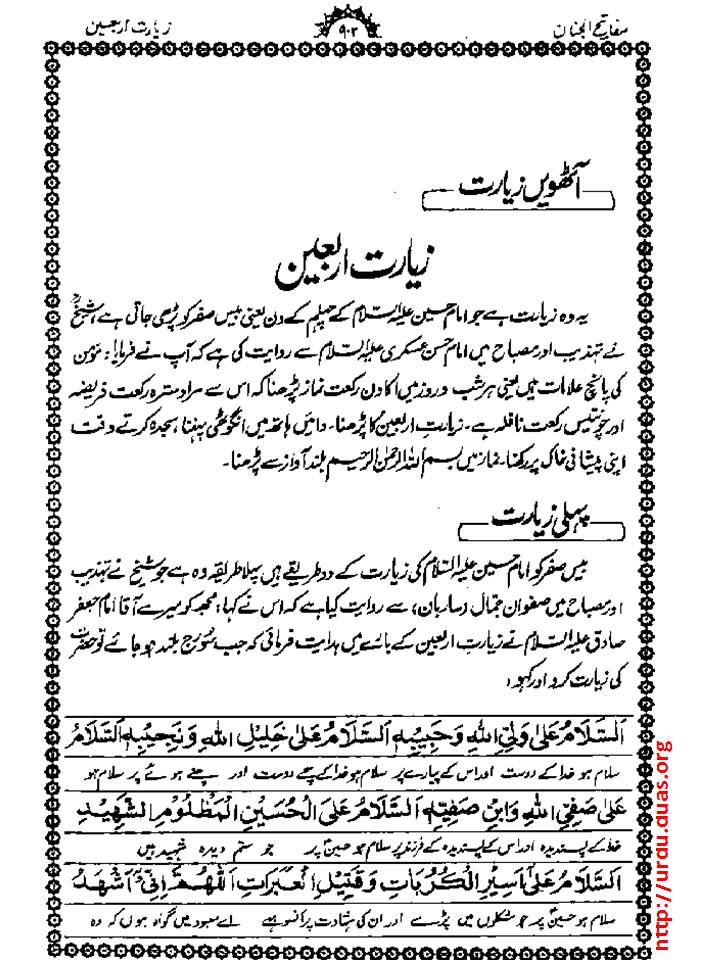 مفاتیح الجنان
۹۰۲
زیارت اربعین
آٹھویں زیارت
زیارت اربعین
یہ وہ زیارت ہے جو امام حسین علیہ السلام کے چہلم کے دن یعنی بیس صفر کو پڑھی جاتی ہے، شیخؒ
نے تہذیب اور مصباح میں امام حسن عسکری علیہ السلام سے روایت کی ہے کہ آپ نے فرمایا: مؤمن
کی پانچ علامات ہیں یعنی ہر شب و روز میں اکاون رکعت نماز پڑھنا کہ اس سے مراد سترہ رکعت فریضہ
اور چونتیس رکعت نافلہ ہے۔ زیارت اربعین کا پڑھنا۔ دائیں ہاتھ میں انگوٹھی پہننا، سجدہ کرتے وقت
اپنی پیشانی خاک پر رکھنا۔ نماز میں بسم اللہ الرحمٰن الرحیم بلند آواز سے پڑھنا۔
پہلی زیارت
بیس صفر کو امام حسین علیہ السلام کی زیارت کے دو طریقے ہیں پہلا طریقہ وہ ہے جو شیخ نے تہذیب
اور مصباح میں صفوان جمال (ساربان) سے روایت کیا ہے کہ اس نے کہا: مجھ کو میرے آقا امام جعفر
صادق علیہ السلام نے زیارت اربعین کے بارے میں ہدایت فرمائی کہ جب سورج بلند ہو جائے تو حضرت
کی زیارت کرو اور کہو:
اَلسَّلَامُ عَلٰی وَلِیِّ اللهِ وَحَبِیْبِهٖ اَلسَّلَامُ عَلٰی خَلِیْلِ اللهِ وَنَجِیْبِهٖ اَلسَّلَامُ
سلام ہو خدا کے دوست اور اس کے پیارے پر سلام ہو خدا کے سچے دوست اور چنے ہوئے پر سلام ہو
عَلٰی صَفِیِّ اللهِ وَابْنِ صَفِیِّهٖ اَلسَّلَامُ عَلَی الْحُسَیْنِ الْمَظْلُوْمِ الشَّهِیْدِ
خدا کے پسندیدہ اور اس کے پسندیدہ کے فرزند پر سلام ہو حسینؑ پر جو ستم دیدہ شہید ہیں
اَلسَّلَامُ عَلٰی اَسِیْرِ الْکُرُبَاتِ وَقَتِیْلِ الْعَبَرَاتِ اَللّٰهُمَّ اِنِّیْ اَشْهَدُ
سلام ہو حسینؑ پر جو مشکلوں میں پڑے اور ان کی شہادت پر آنسو بہے اے معبود میں گواہ ہوں کہ وہ
http://urdu.duas.org